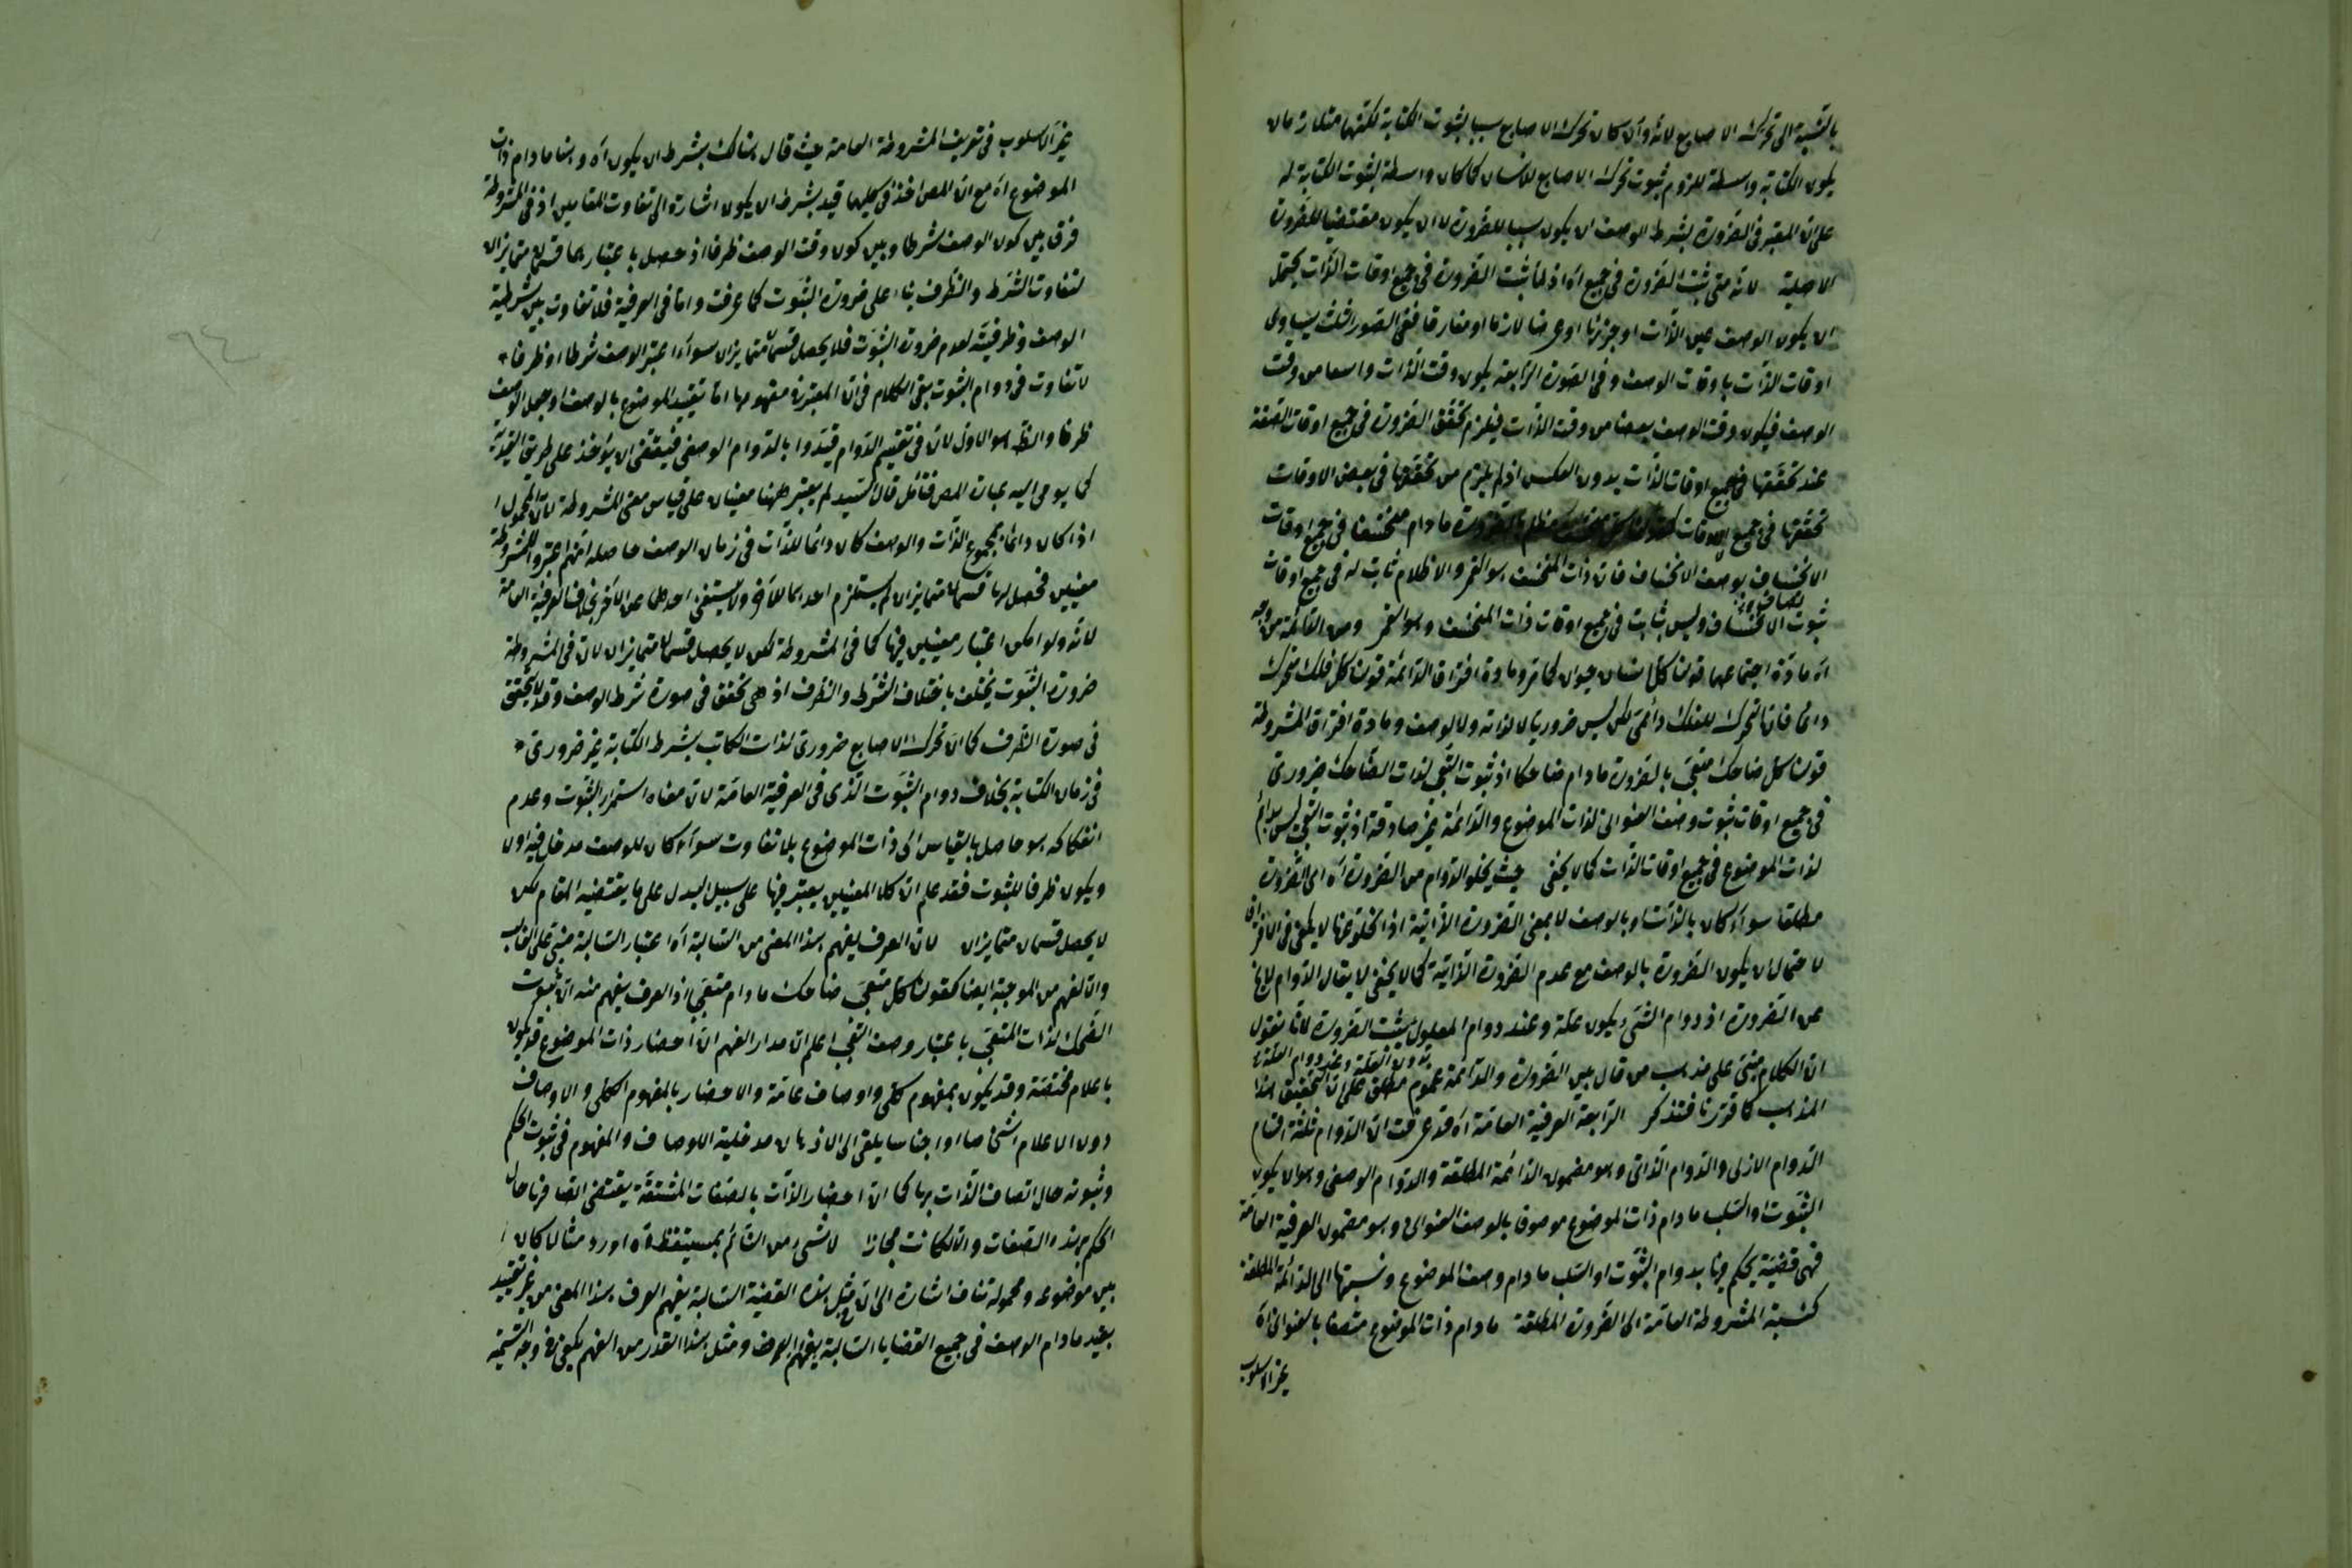 بالنسبة الى تحرك الاصابع لانه وان كان تحرك الاصابع سببا لثبوت الكتابة لكنهما متلازمان
يكون الكتابة واسطة للزوم ثبوت تحرك الاصابع للانسان كما كان واسطة لثبوت الكتابة له
على ان المعتبر فى الضرورة بشرط الوصف ان يكون سببا للضرورة لا ان يكون مقتضيا للضرورة
الاصلية لانه متى ثبت الضرورة فى جميع آه اذ لما ثبت الضرورة فى جميع اوقات الذات يحتمل
ان يكون الوصف عين الذات او جزئها او عرضا لازما او مفارقا ففى الصور الثلث يساوى
اوقات الذات باوقات الوصف وفى الصورة الرابعة يكون وقت الذات واسعا من وقت
الوصف فيكون وقت الوصف بعضا من وقت الذات فيلزم تحقق الضرورة فى جميع اوقات الصفة
عند تحققها فى جميع اوقات الذات بدون العكس اذ لم يلزم من تحققها فى بعض الاوقات
تحققها فى جميع الاوقات كقولنا كل منخسف مظلم بالضرورة ما دام منخسفا فى جميع اوقات
الانخساف بوصف الانخساف فان ذات المنخسف هو القمر والاظلام ثابت له فى جميع اوقات
ثبوت الانخساف وليس بثابت فى جميع اوقات ذات المنخسف وهو القمر ومن الدائمة من وجه
آه مادة اجتماعهما قولنا كل انسان حيوان كما مر ومادة افتراق الدائمة قولنا كل فلك متحرك
دائما فان التحرك للفلك دائمى لكن ليس ضروريا لا لذاته ولا لوصف ومادة افتراق المشروطة
قولنا كل ضاحك متعجب بالضرورة ما دام ضاحكا اذ ثبوت التعجب لذات الضاحك ضرورى
فى جميع اوقات ثبوت وصف العنوانى لذات الموضوع والدائمة غير صادقة اذ ثبوت التعجب ليس بدائم
لذات الموضوع فى جميع اوقات الذات كما لا يخفى حيث يخلو الدوام من الضرورة آه اى الضرورة
مطلقا سواء كان بالذات او بالوصف لا بمعنى الضرورة الذاتية اذ الخلو عنها لا يكفى فى الافتراق
لاحتمال ان يكون الضرورة بالوصف مع عدم الضرورة الذاتية كما لا يخفى لا يقال الدوام لا يخ
عن الضرورة اذ دوام الشىء يكون علة وعند دوام المعلول يثبت الضرورة لانا نقول
ان الكلام مبنى على مذهب من قال بين الضرورة والدائمة عموم مطلق على ان التحقيق هذا
المذهب كما قررنا فتذكر الرابعة العرفية العامة آه قد عرفت ان الدوام ثلثة اقسام
الدوام الازلى والدوام الذاتى وهو مضمون الدائمة المطلقة والدوام الوصفى وهو ان يكون
الثبوت او السلب ما دام ذات الموضوع موصوفا بالوصف العنوانى وهو مضمون العرفية العامة
فهى قضية يحكم فيها بدوام الثبوت او السلب ما دام وصف الموضوع ونسبتها الى الدائمة المطلقة
كنسبة المشروطة العامة الى الضرورة المطلقة ما دام ذات الموضوع متصفا بالعنوانى آه
غير الاسلوب
غير الاسلوب فى تعريف المشروطة العامة حيث قال هناك بشرط ان يكون آه وهنا ما دام ذات
الموضوع آه مع ان المص اخذ فى كليهما قيد بشرط ان يكون اشارة الى تفاوت المقامين اذ فى المشروطة
فرق بين كون الوصف شرطا وبين كون وقت الوصف ظرفا اذ حصل باعتبارهما قسمان متمايزان
لتفاوت الشرط والظرف بناء على ضرورة الثبوت كما عرفت واما فى العرفية فلا تفاوت بين شرطية
الوصف وظرفيته لعدم ضرورة الثبوت فلا يحصل قسمان متمايزان سواء اعتبر الوصف شرطا او ظرفا
لا تفاوت فى دوام الثبوت بقى الكلام فى ان المعتبر فى مفهومها اما تقييد الموضوع بالوصف او جعل الوصف
ظرفا والظ هو الاول لان فى تقسيم الدوام قيدوا بالدوام الوصفى فيقتضى ان يؤخذ على طريق القيدية
كما يومى اليه عبارة المص فتأمل قال السيد لم يعتبر ههنا معنيان على قياس معنى المشروطة لان المحمول
اذا كان دائما لمجموع الذات والوصف كان دائما للذات فى زمان الوصف حاصله انهم اعتبروا للمشروطة
معنيين فحصل لها قسمان متمايزان لم يستلزم احدهما للآخر ولا يستغنى احدهما عن الآخر بخلاف العرفية العامة
لانه ولو امكن اعتبار معنيين فيها كما فى المشروطة لكن لا يحصل قسمان متمايزان لان فى المشروطة
ضرورة الثبوت يختلف باختلاف الشرط والظرف اذ هى تحقق فى صورة شرط الوصف وقد لا يتحقق
فى صورة الظرف كما ان تحرك الاصابع ضرورى لذات الكاتب بشرط الكتابة غير ضرورى
فى زمان الكتابة بخلاف دوام الثبوت الذى فى العرفية العامة لان معناه استمرار الثبوت وعدم
انفكاكه هو حاصل بالقياس الى ذات الموضوع بلا تفاوت سواء كان للوصف مدخل فيه او لا
ويكون ظرفا للثبوت فقد علم ان كلا المعنيين يعتبر فيها على سبيل البدل على ما يقتضيه المقام لكن
لا يحصل قسمان متمايزان لان العرف يفهم هذا المعنى من السالبة آه اعتبار السالبة مبنى على الغالب
وان الفهم من الموجبة ايضا كقولنا كل متعجب ضاحك ما دام متعجبا اذ العرف يفهم منه ان ثبوت
الضحك لذات المتعجب باعتبار وصف التعجب اعلم ان مدار الفهم ان احضار ذات الموضوع قد يكون
باعلام مختصة وقد يكون بمفهوم كلى واوصاف عامة والاحضار بالمفهوم الكلى والاوصاف
دون الاعلام اشخاصا او اجناسا يلقى الى الاذهان مدخلية الاوصاف والمفهوم فى ثبوت الحكم
وثبوته حال اتصاف الذات بها كما ان احضار الذات بالصفات المشتقة يقتضى اتصافها حال
الحكم بهذه الصفات وان كانت مجازا لا شىء من النائم بمستيقظ آه اورد مثالا كان
بين موضوعه ومحموله تناف اشارة الى ان مثل هذه القضية السالبة يفهم العرف هذا المعنى من غير تقييد
بقيد ما دام الوصف فى جميع القضايا السالبة يفهم العرف ومثل هذا القدر من الفهم يكفى فى وجه التسمية